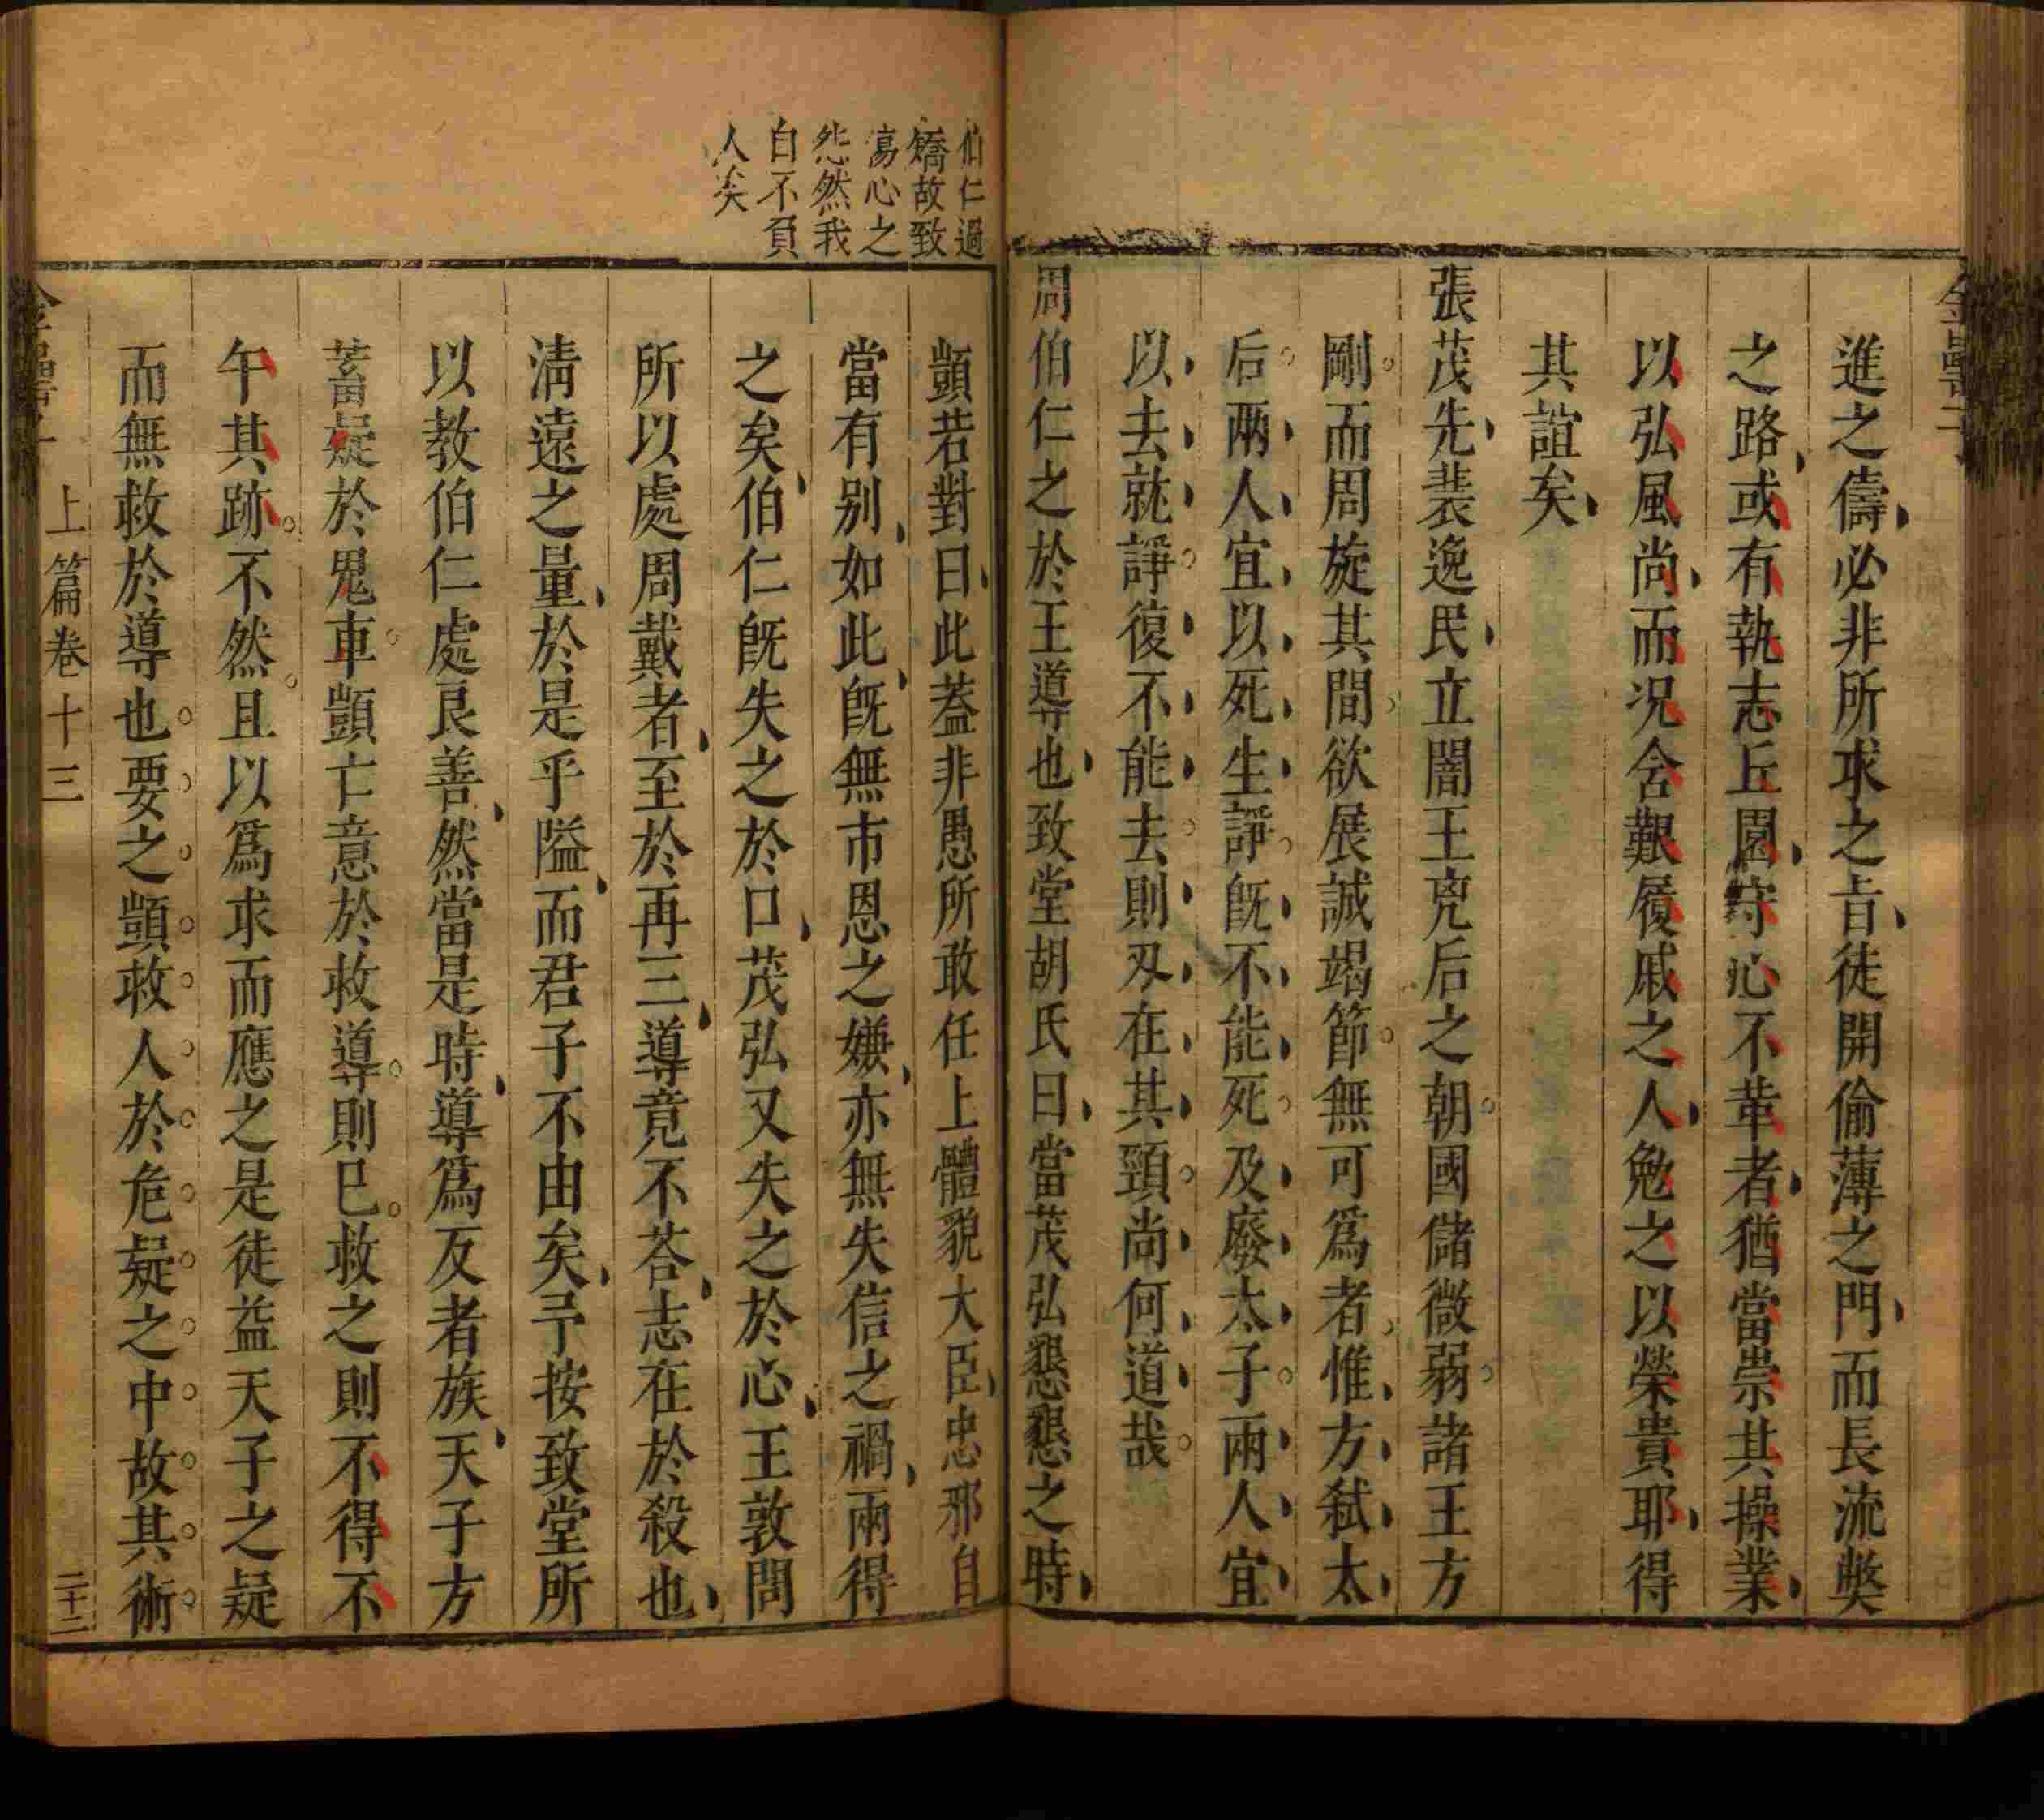 進之儔必非所求之旨徒開偷薄之門而長流弊
之路或有執志丘園守心不革者猶當崇其操業
以弘風尚而况舍艱履戚之人勉之以榮貴耶得
其誼矣
張茂先裴逸民立闇王兇后之朝國儲微弱諸王方
剛而周旋其間欲展誠竭節無可爲者惟方弑太
后兩人宜以死生諍旣不能死及廢太子兩人宜
以去就諍復不能去則刄在其頸尚何道哉
周伯仁之於王導也致堂胡氏曰當茂弘懇懇之時
伯仁過
矯故致
傷心之
怨然我
自不負
人矣
顗若對曰此葢非愚所敢任上體貌大臣忠邪自
當有别如此旣無市恩之嫌亦無失信之禍兩得
之矣伯仁旣失之於口茂弘又失之於心王敦問
所以處周戴者至於再三導竟不荅志在於殺也
淸遠之量於是乎隘而君子不由矣予按致堂所
以教伯仁處良善然當是時導爲反者族天子方
蓄疑於鬼車顗亡意於救導則已救之則不得不
午其跡不然且以爲求而應之是徒益天子之疑
而無救於導也要之顗救人於危疑之中故其術
上篇卷十三
二十二